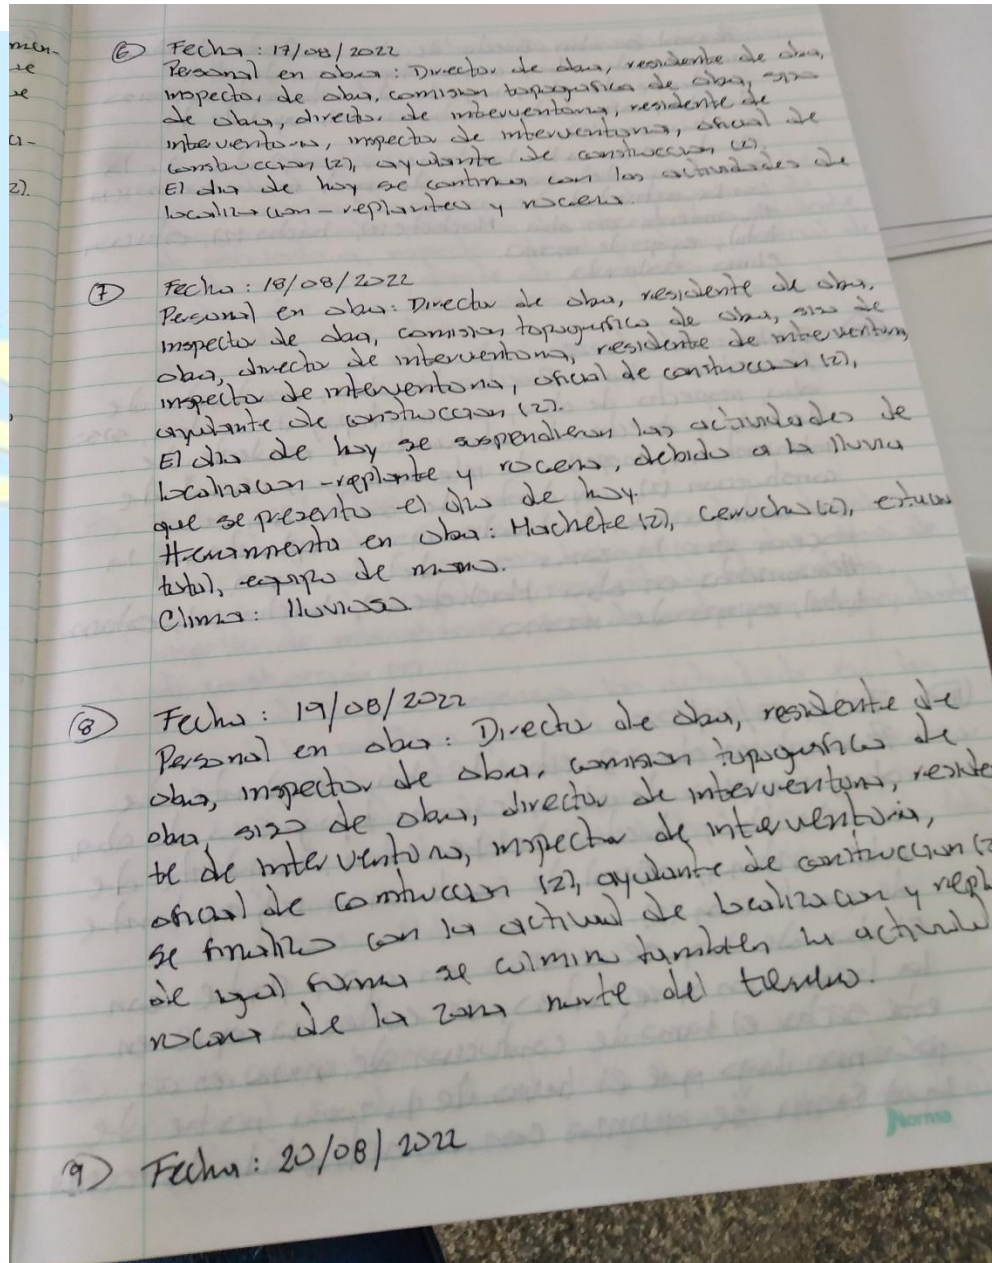 ⑥ Fecha : 17/08/2022
Personal en obra : Director de obra, residente de obra,
inspector de obra, comision topografica de obra, siso
de obra, director de interventoria, residente de
interventoria, inspector de interventoria, oficial de
construccion (2), ayudante de construccion (2).
El dia de hoy se continua con las actividades de
localizacion - replanteo y roceria.
⑦ Fecha : 18/08/2022
Personal en obra : Director de obra, residente de obra,
inspector de obra, comision topografica de obra, siso de
obra, director de interventoria, residente de interventoria,
inspector de interventoria, oficial de construccion (2),
ayudante de construccion (2).
El dia de hoy se suspendieron las actividades de
localizacion - replante y roceria, debido a la lluvia
que se presento el dia de hoy.
Herramienta en obra : Machete (2),
total, equipo de mano.
Clima : lluvioso
⑧ Fecha : 19/08/2022
Personal en obra : Director de obra, residente de
obra, inspector de obra, comision topografica de
obra, siso de obra, director de interventoria, residen
te de interventoria, inspector de interventoria,
oficial de construccion (2), ayudante de construccion (2
se finalizo con la activad de localizacion y repl
de igual forma se culmino tambien la activida
roceria de la zona norte del terreno.
Norma
⑨ Fecha : 20/08/2022